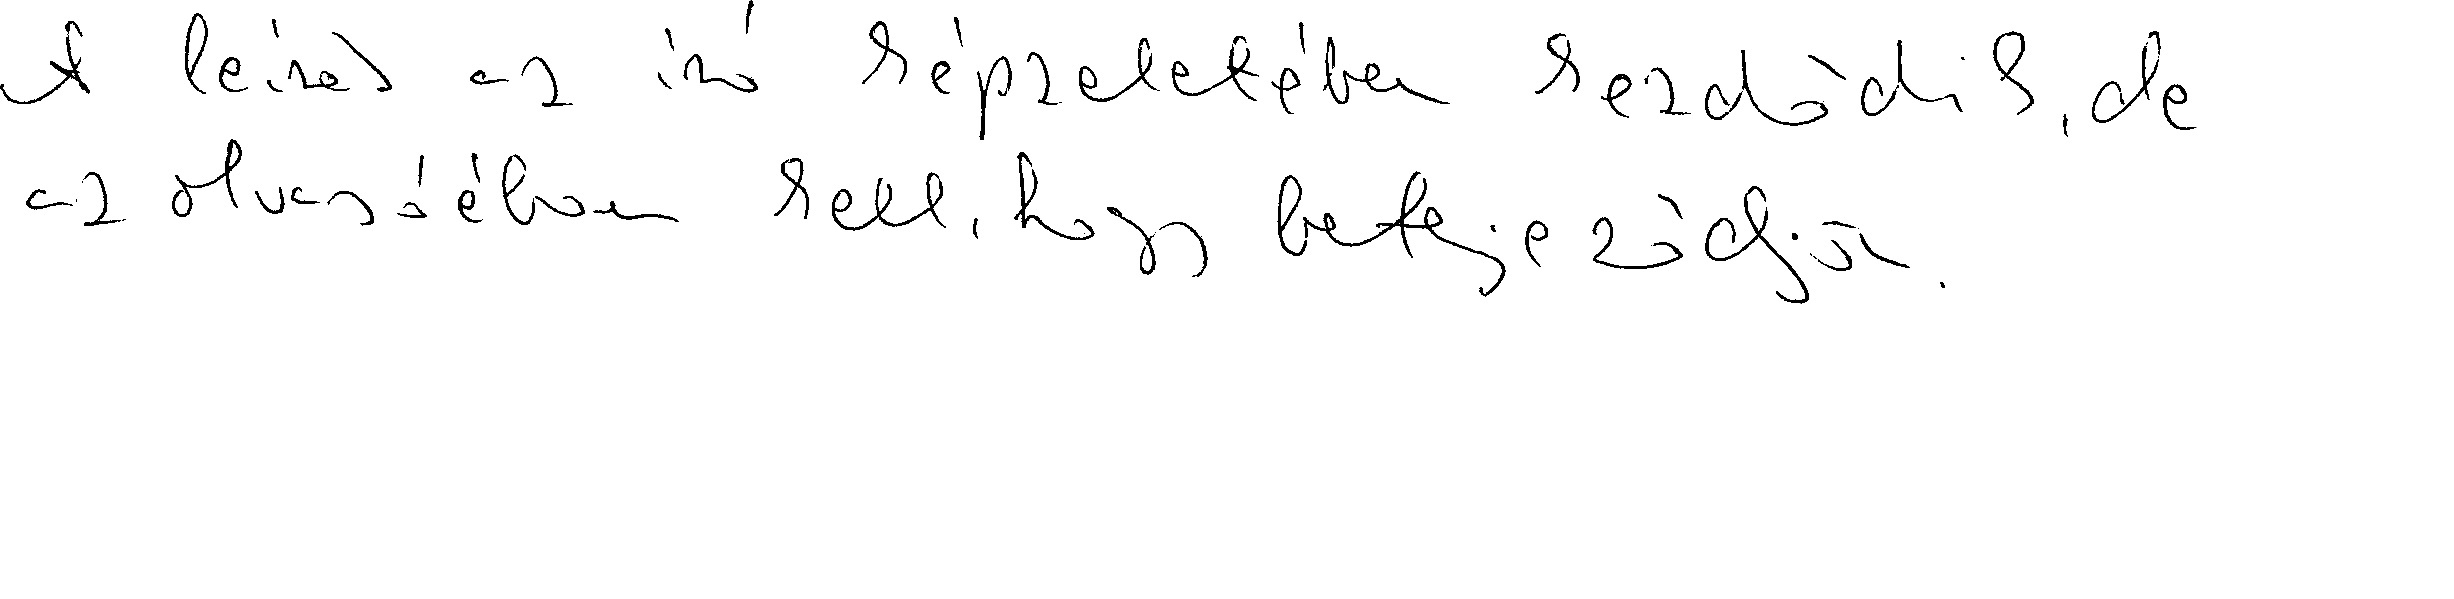 A leírás az író képzeletében kezdődik, de
az olvasóéban kell, hogy befejeződjön.